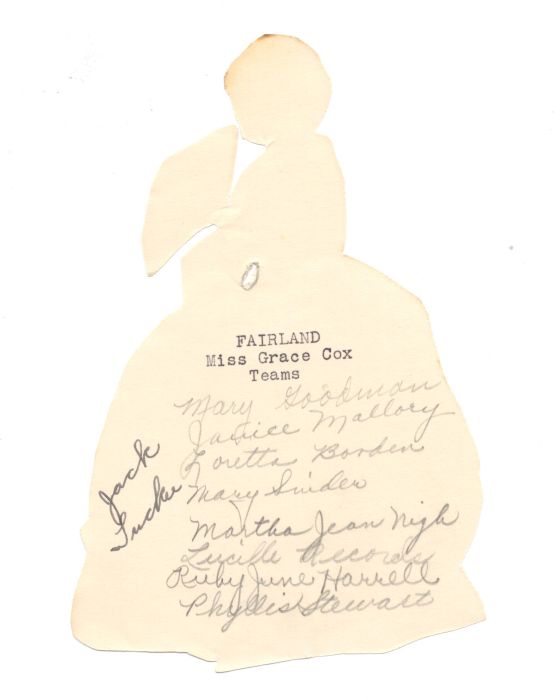 FAIRLAND
Miss Grace Cox
Teams
Mary Goodman
Janice Mallory
Loretta Borden
Mary Snider
Martha Jean Nigh
Lucille Records
Ruby June Harrell
Phyllis Stewart
Jack
Tucker